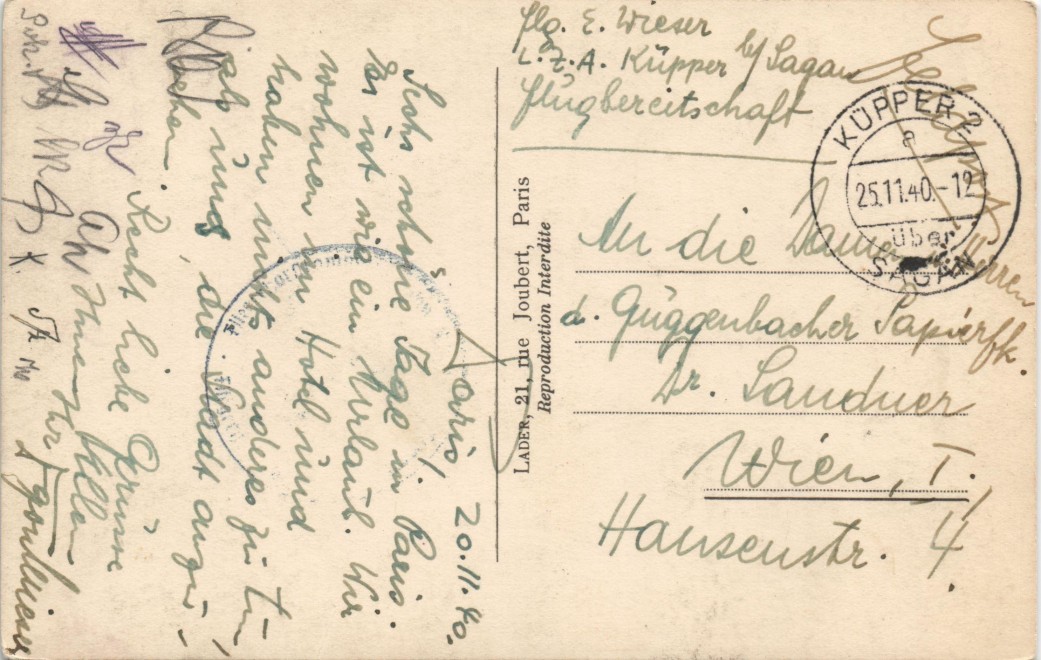 Flg. E. Wieser
L.Z.A. Küpper b/ Sagan
Flugbereitschaft
Feldpost
KÜPPER 2
a
25.11.40.-12
über
SAGAN
An die Damen Herren
d. Guggenbacher Papierfk.
Dr. Sandner
Wien, I.
Hansenstr. 4.
LADER, 21, rue Joubert, Paris
Reproduction Interdite
Paris, 20.11.40.
Sechs schöne Tage in Paris.
Es ist wie ein Urlaub. Wir
wohnen im Hotel und
haben nichts anderes zu tun
als uns die Stadt anzu-
schauen.
Recht liebe Grüsse
Ihnen Allen
Ihr